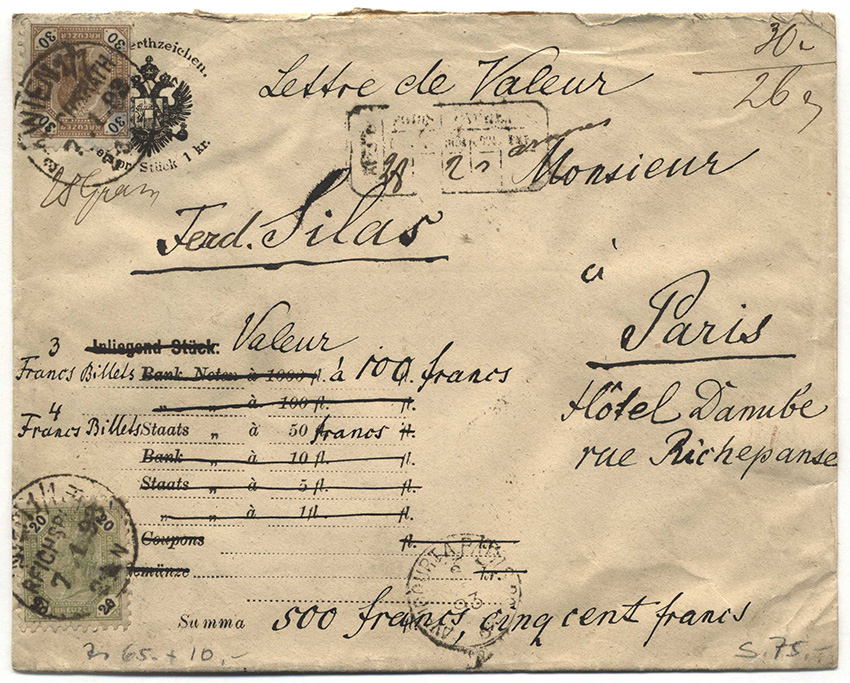 30 30
30 30
KREUZER
WIEN 1/1
erthzeichen.
pr. Stück 1 kr.
30
26
Lettre de Valeur
28
Monsieur
Ferd. Silas
à
Paris
Hôtel Danube
rue Richepanse
3 Inliegend Stück: Valeur
Francs Billets Bank Noten à 1000 fl. à 100 francs
„ „ à 100 fl.
4
Francs Billets Staats „ à 50 francs fl.
Bank „ à 10 fl. fl.
Staats „ à 5 fl. fl.
„ „ à 1 fl. fl.
Coupons fl. kr.
münze kr.
Summa 500 francs, cinq cent francs
20 20
20 20
KREUZER
WIEN 1/1
REICHSR
7 1 93
93
65.- + 10.-
S. 75.-